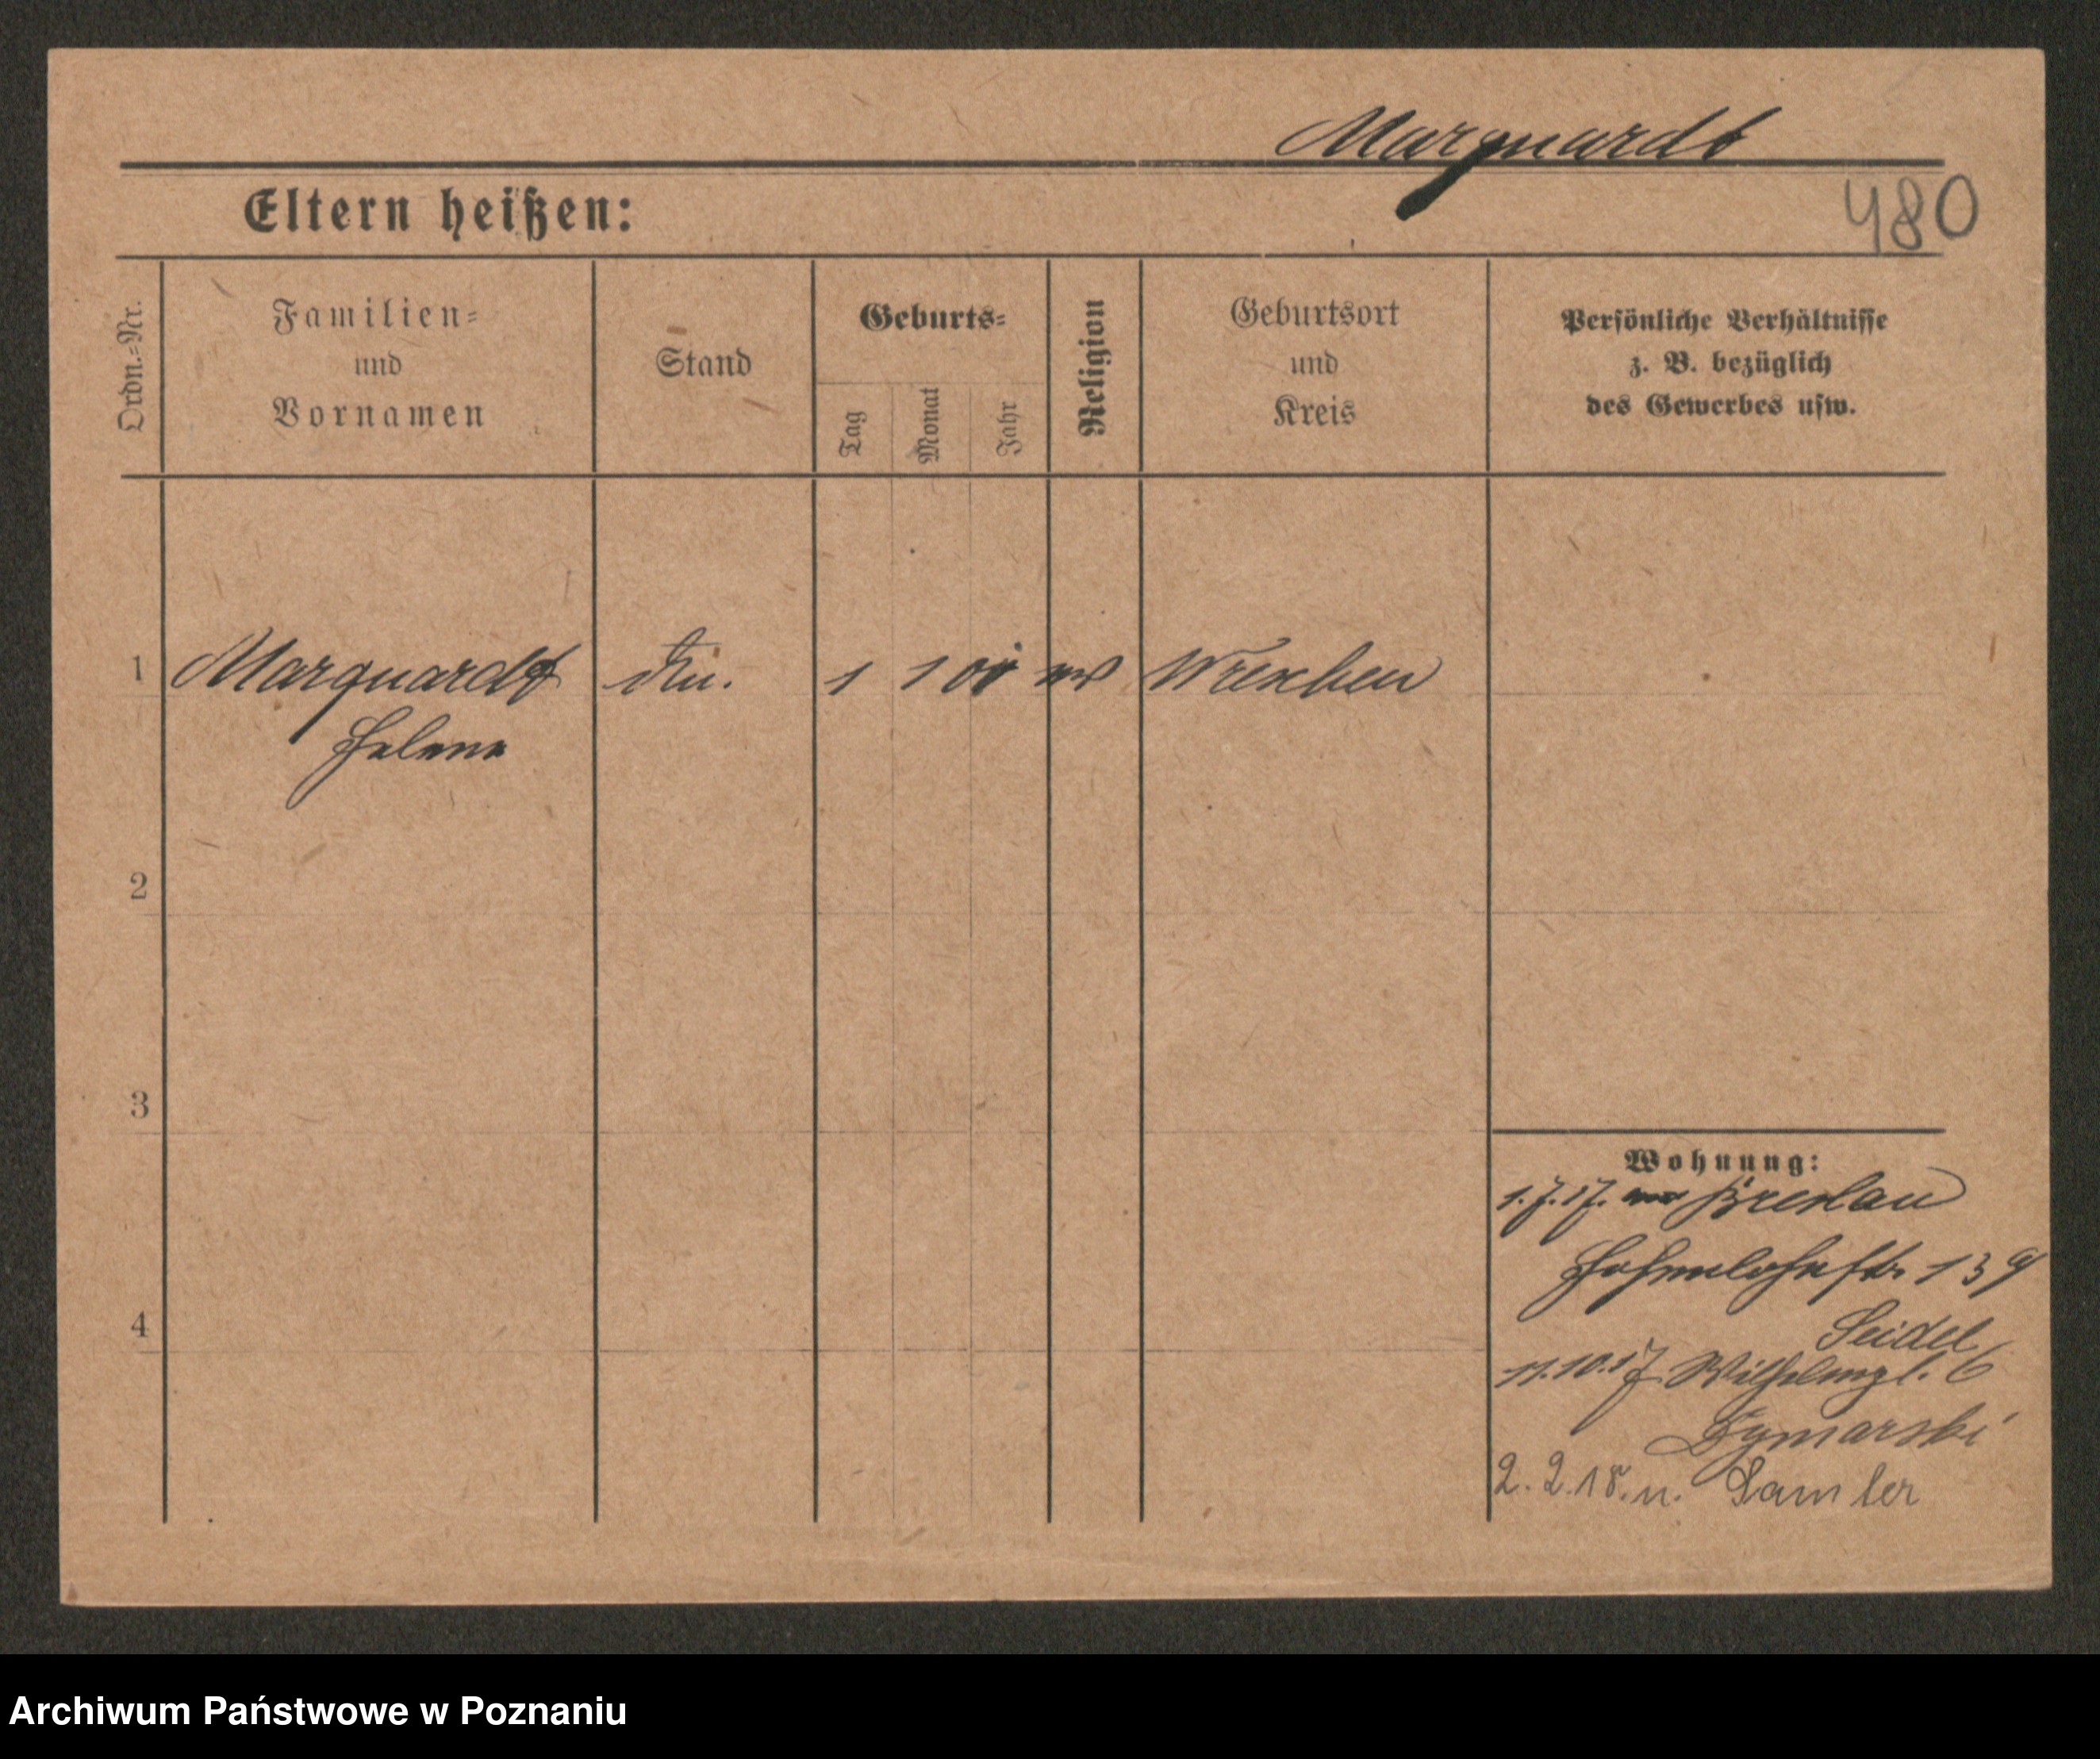 Marquardt
480
Eltern heißen:
Ordn.=Nr.
Familien=
und
Vornamen
Stand
Geburts=
Tag
Monat
Jahr
Religion
Geburtsort
und
Kreis
Persönliche Verhältnisse
z. B. bezüglich
des Gewerbes usw.
1 Marquardt 1 1 Wreschen
Helene
2
3
4
Wohnung:
1.7.17. Breslau
Hohenlohestr. 139
Seidel
11.10.17 Wilhelmpl. 6
Dymarski
2.2.18. n. Samter
Archiwum Państwowe w Poznaniu